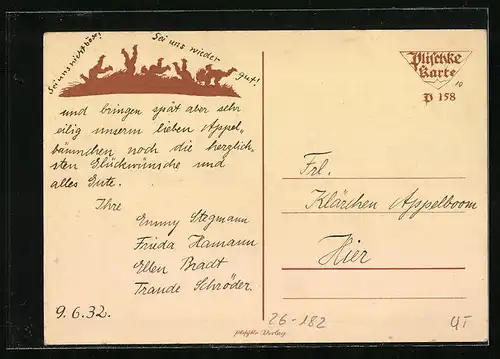 Sei uns nicht böse! Sei uns wieder gut!
und bringen spät aber sehr
eilig unserm lieben Appel-
bäumchen noch die herzlich-
sten Glückwünsche und
alles Gute.
Ihre
Emmy Stegmann
Frieda Hamann
Ellen Bradt
Traude Schröder.
9.6.32.
Plischke
Karte
10
P 158
Frl.
Klärchen Appelboom
Hier
26-182
Verlag